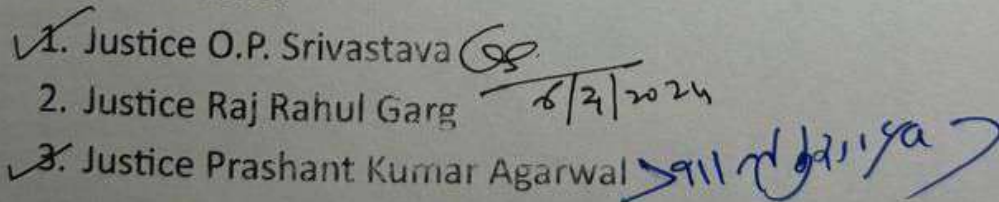 1. Justice O.P. Srivastava
2. Justice Raj Rahul Garg
3. Justice Prashant Kumar Agarwal